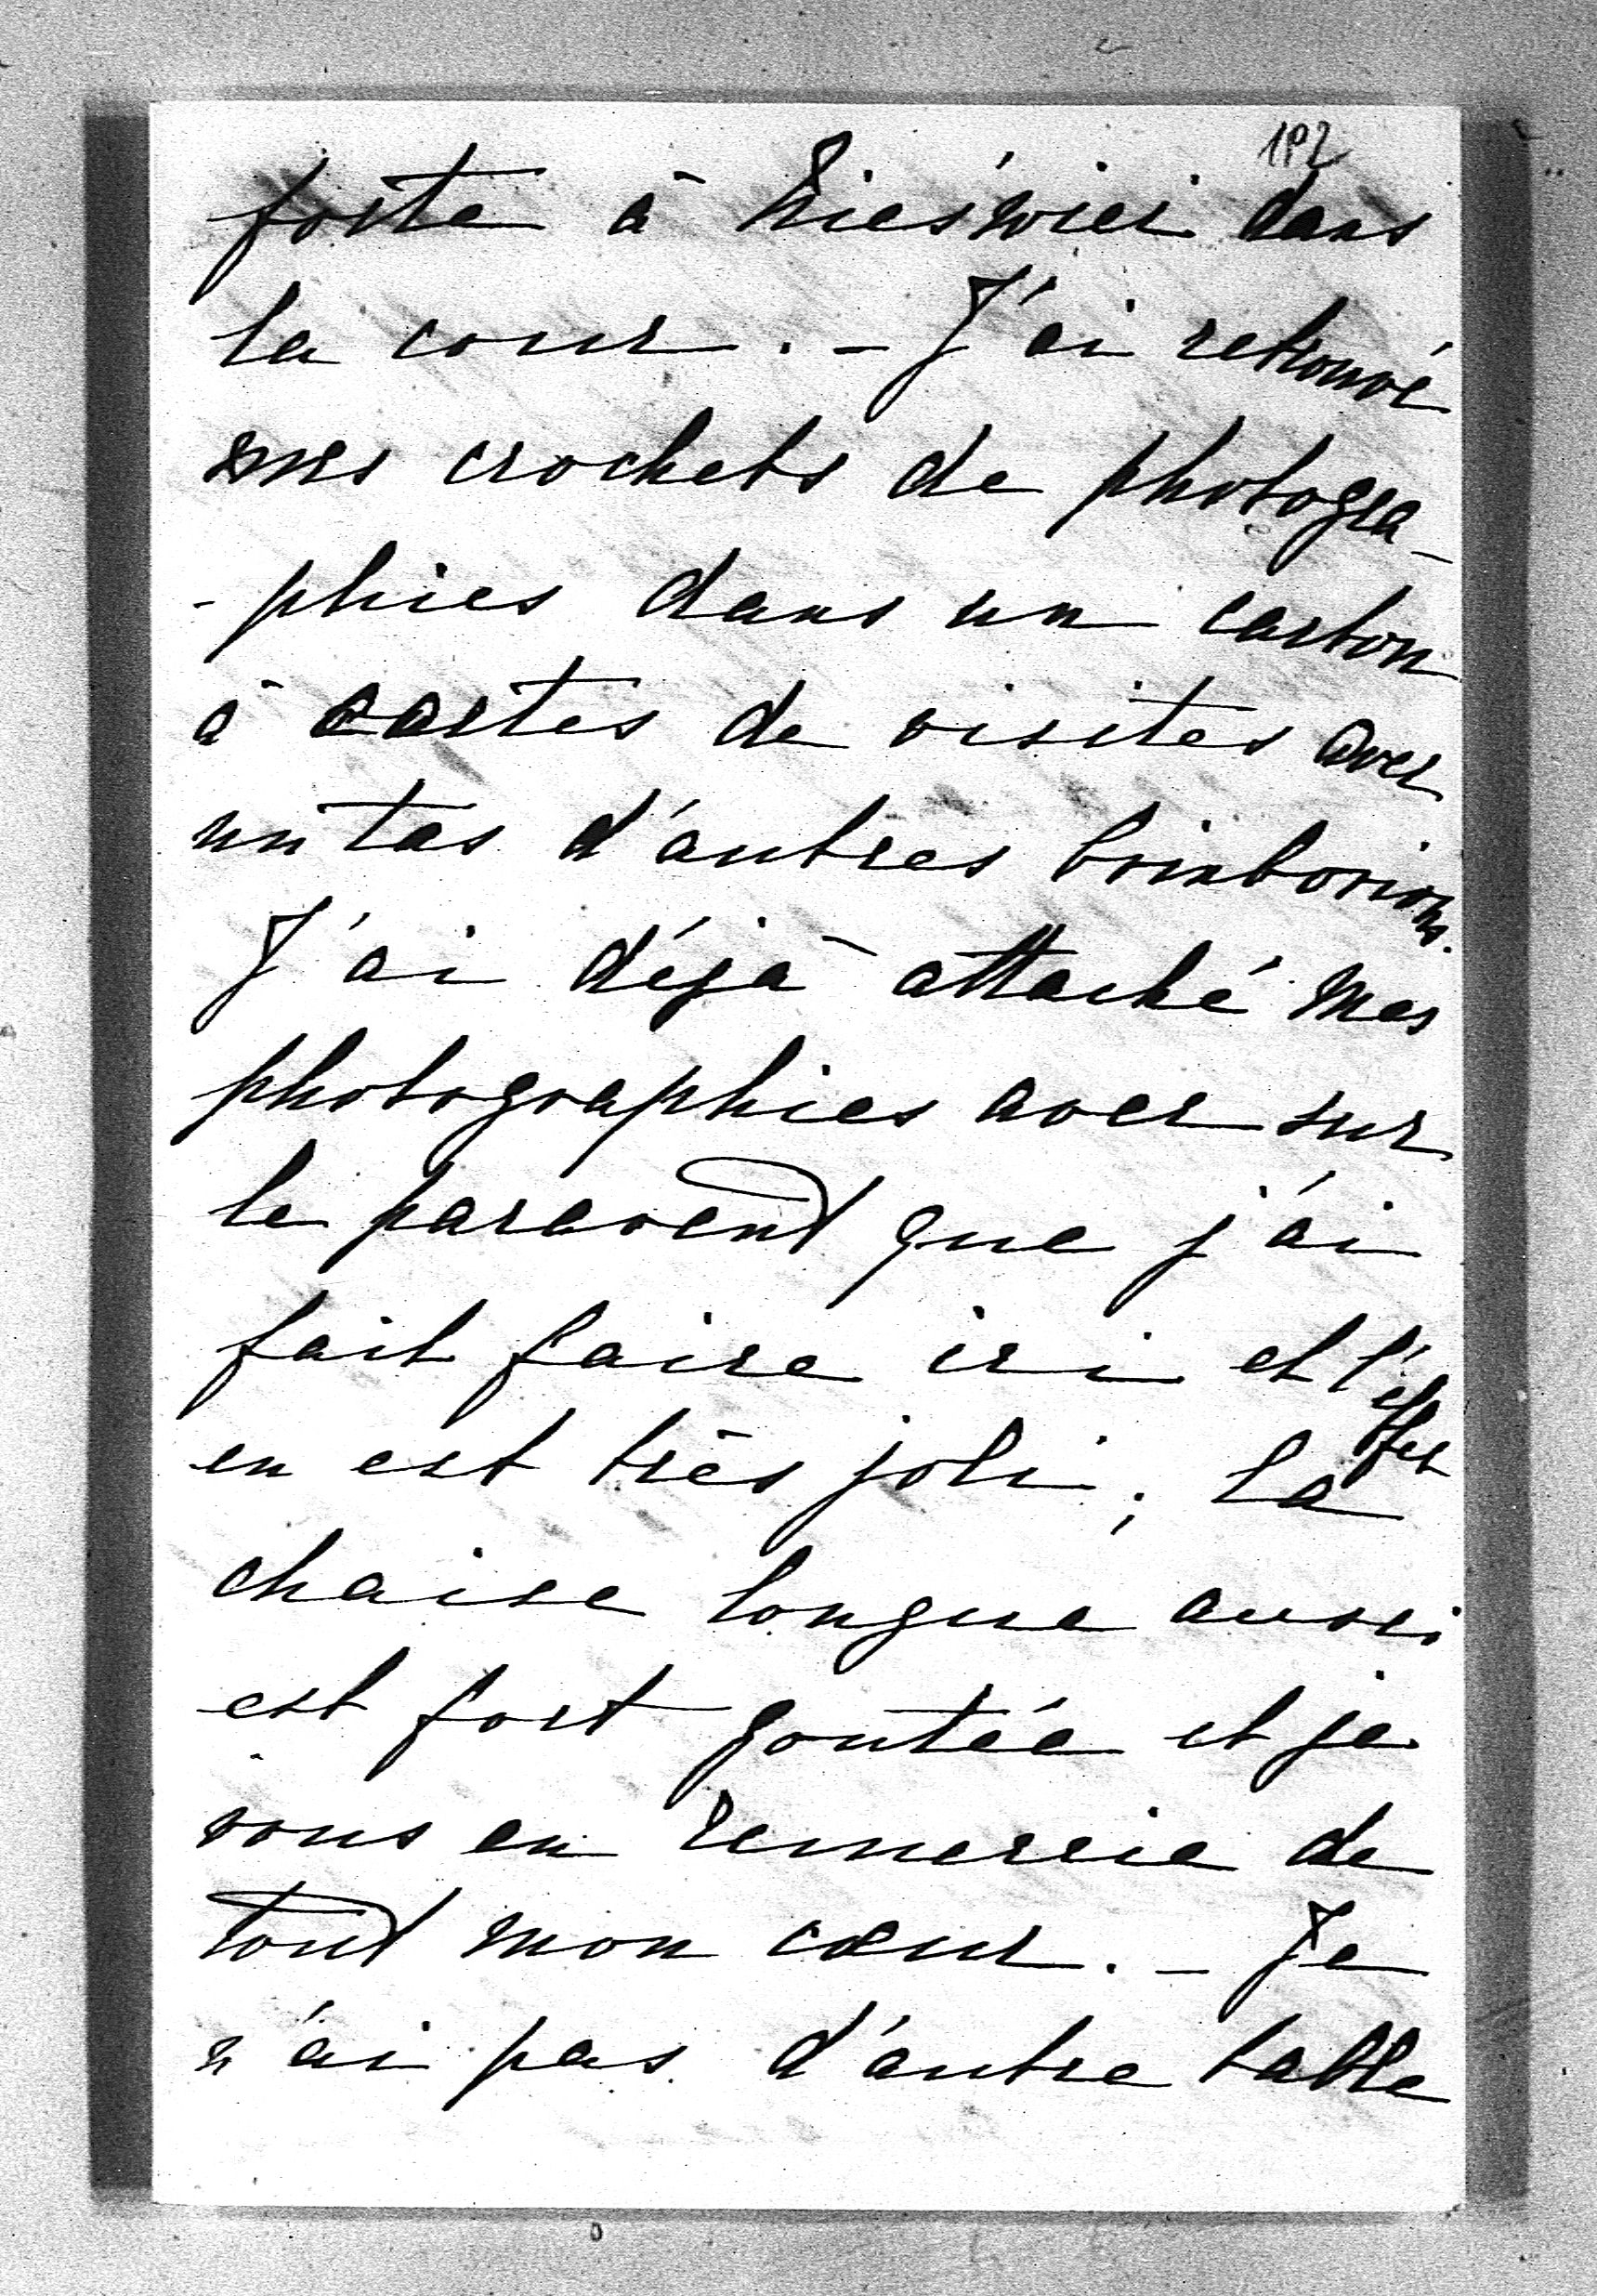 182
forte à Nieśwież dans
la cour. – J'ai retrouvé
mes crochets de photogra-
-phies dans un carton
à cartes de visites avec
un tas d'autres brimborions.
J'ai déjà attaché mes
photographies avec sur
le paravent que j'ai
fait faire ici et l'effet
en est très joli; la
chaise longue aussi
est fort goutée et je
vous en remercie de
tout mon cœur. – Je
n'ai pas d'autre table